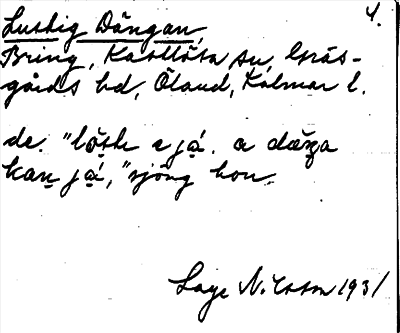 4.
Lustig Dängan,
Bring, Kastlösa sn, Gräs-
gårds hd, Öland, Kalmar l.
de. "löstı ɛ já. a däŋa
kan já," sjöng hon.
Lage Nilsson 1931